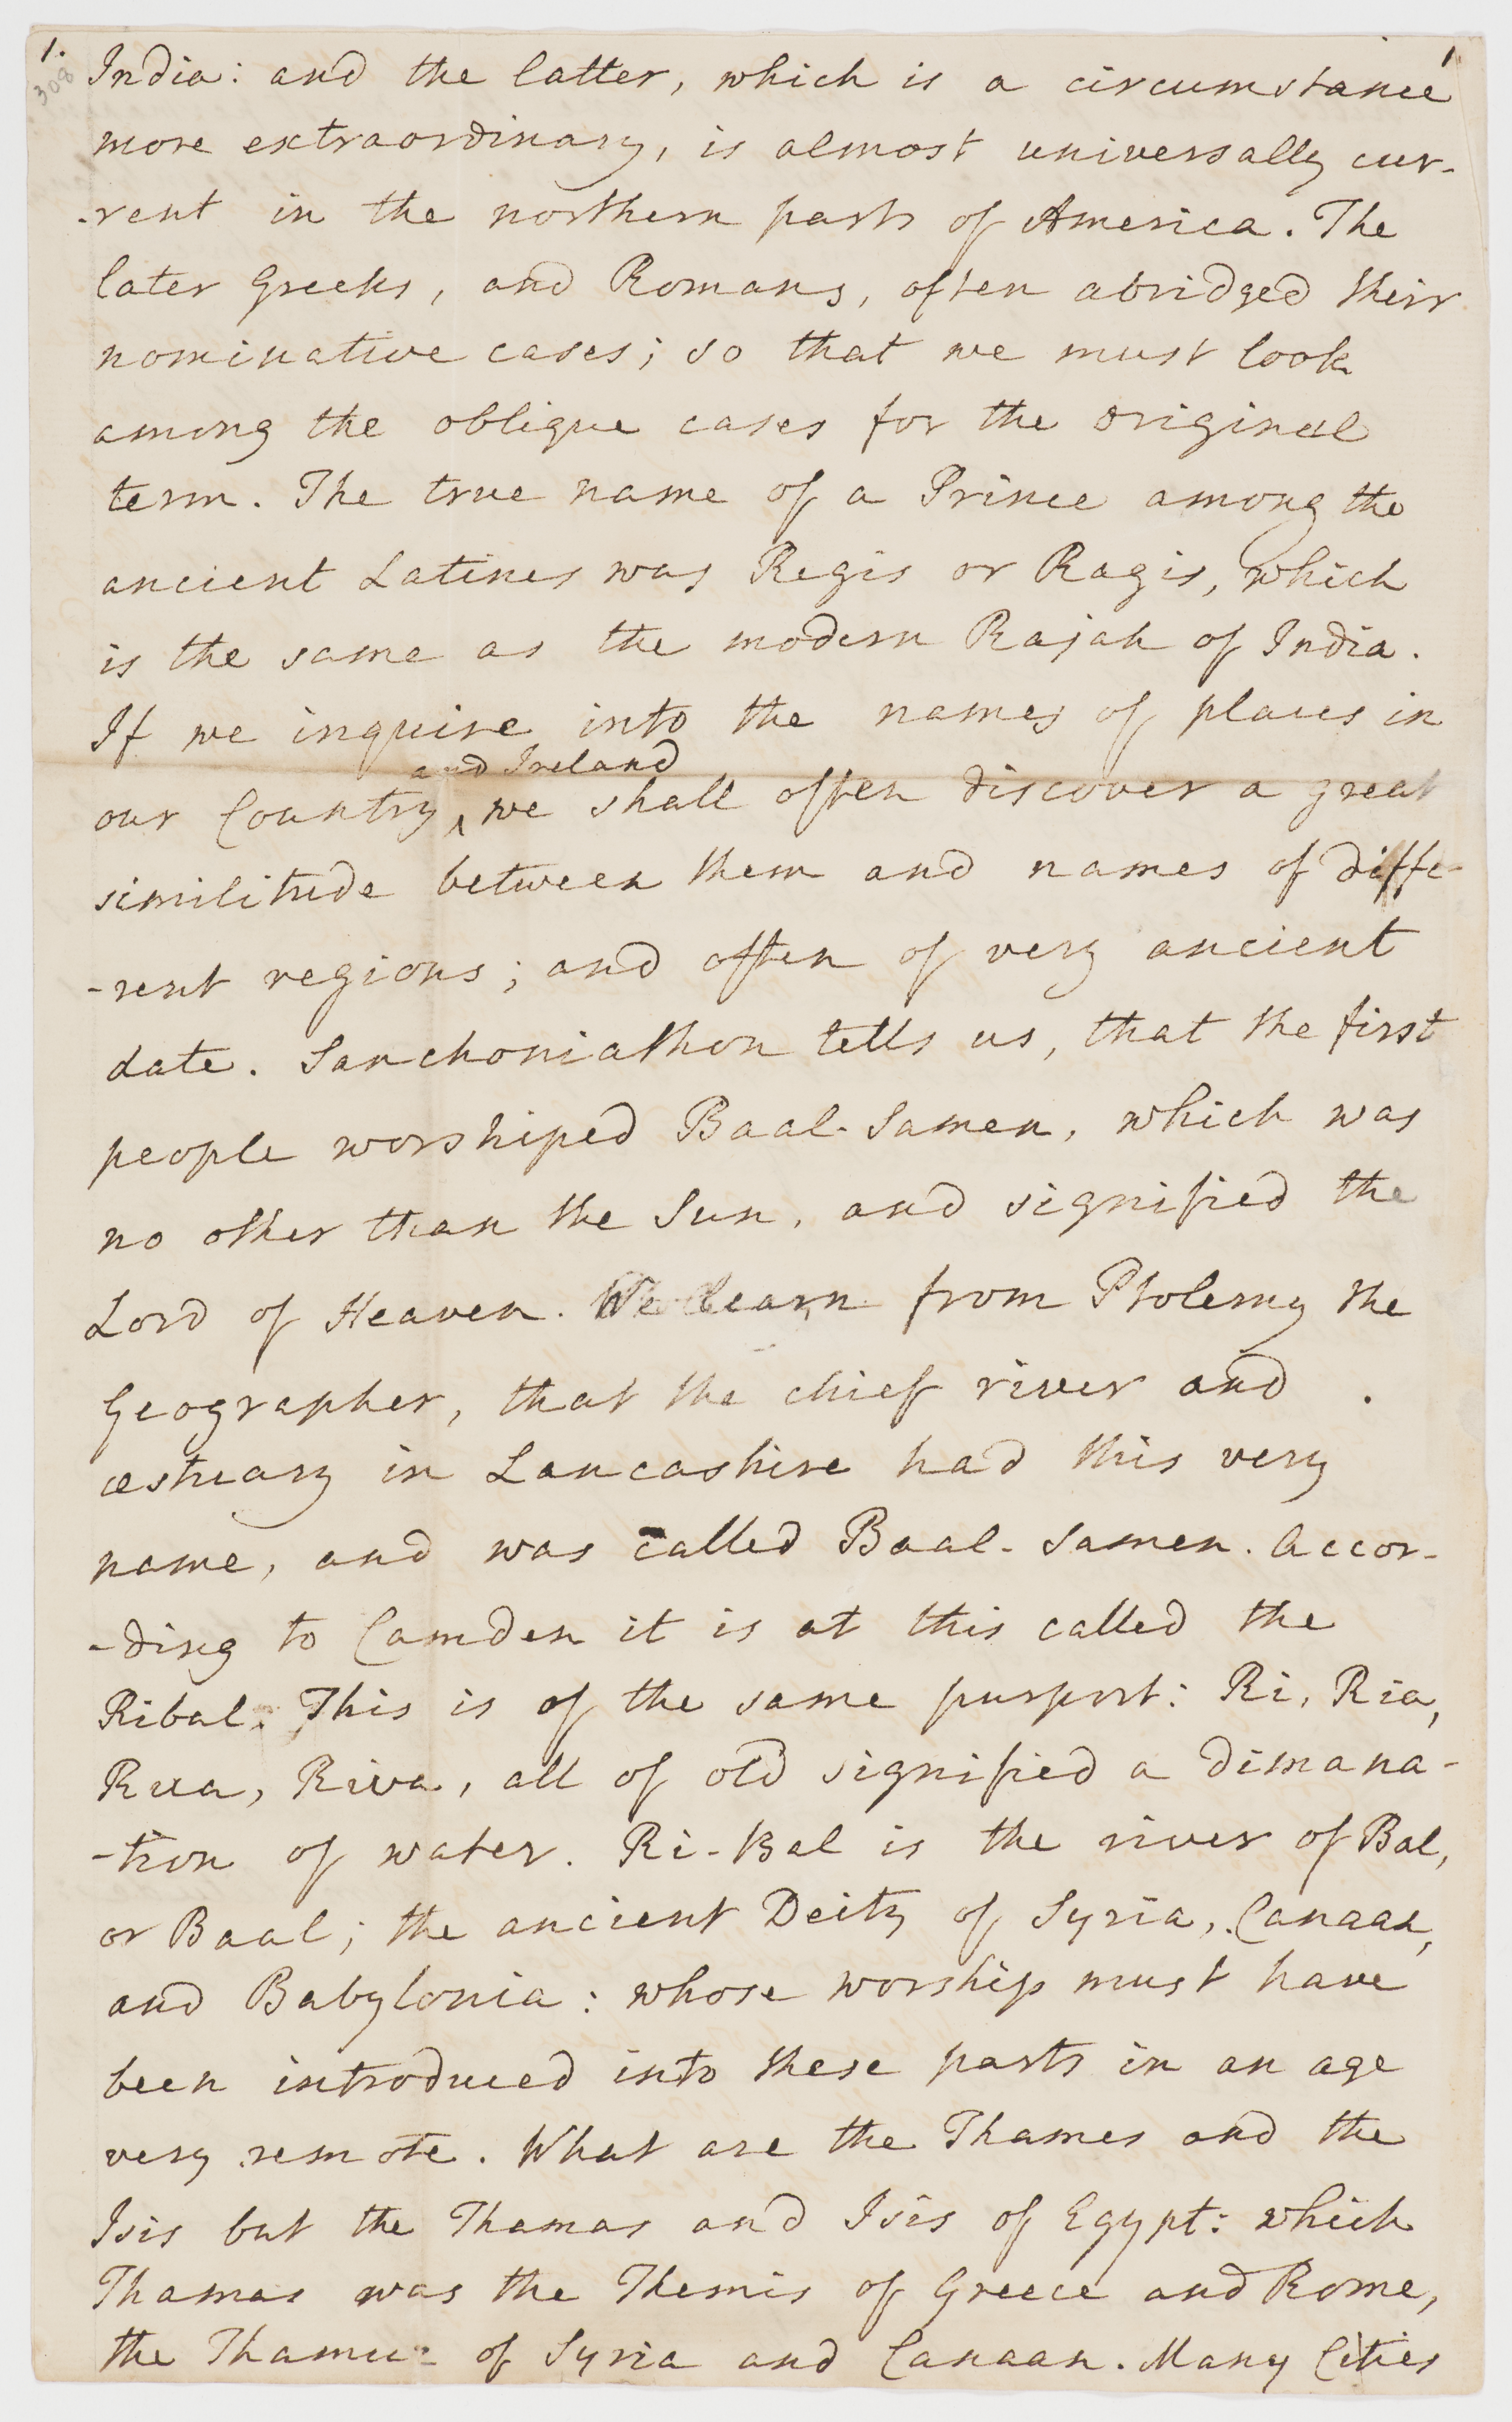 1. 1.
308
India: and the latter, which is a circumstance
more extraordinary, is almost universally cur-
-rent in the northern parts of America. The
later Greeks, and Romans, often abridged their
nominative cases; so that we must look
among the oblique cases for the original
term. The true name of a Prince among the
ancient Latines was Regis or Ragis, which
is the same as the modern Rajah of India.
If we inquire into the names of places in
and Ireland
our Country, ‸ we shall often discover a great
similitude between them and names of diffe-
-rent regions; and often of very ancient
date. Sanchoniathon tells us, that the first
people worshiped Baal-Samen, which was
no other than the Sun, and signified the
Lord of Heaven. We learn from Ptolemy the
Geographer, that the chief river and
æstuary in Lancashire had this very
name, and was called Baal-Samen. Accor-
-ding to Camden it is at this called the
Ribal. This is of the same purport: Ri, Ria,
Rua, Riva, all of old signified a dimana-
-tion of water. Ri-Bal is the river of Bal,
or Baal; the ancient Deity of Syria, Canaan,
and Babylonia: whose worship must have
been introduced into these parts in an age
very remote. What are the Thames and the
Isis but the Thamas and Isis of Egypt: which
Thamas was the Themis of Greece and Rome,
the of Syria and Canaan. Many Cities